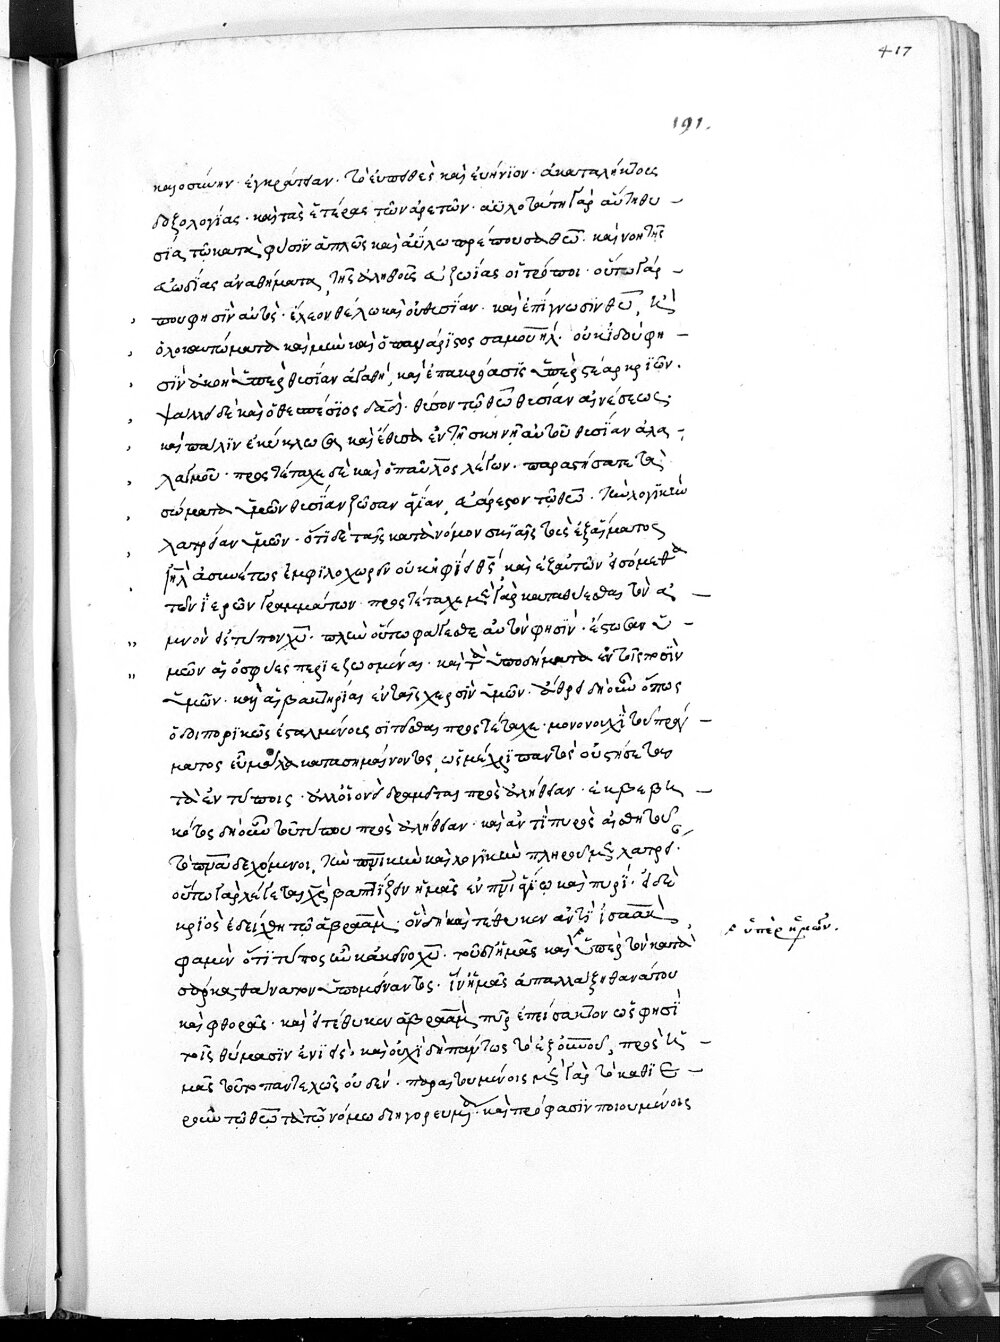 417
191.
καιοσύνην· ἐγκράτειαν· τὸ εὐπειθὲς καὶ εὐήνϊον· ἀκαταλήκτους
δοξολογίας· καὶ τὰς ἑτέρας τῶν ἀρετῶν· αϋλοτάτη γὰρ αὕτη θυ
σία τῶ κατὰ φύσιν ἁπλῶς καὶ ἀΰλω πρέπουσα θεῶ· καὶ νοητῆς
εὐωδίας ἀναθήματα, τῆς ἀληθοῦς εὐζωΐας οἱ τρόποι· οὕτω γάρ
που φησὶν αὐτός· ἔλεον θέλω καὶ οὐ θυσίαν· καὶ ἐπίγνωσιν θεοῦ, ἢ
ὁλοκαυτώματα καὶ μὴν καὶ ὁ πανάριστος σαμουήλ· οὐκ ἰδοὺ φη
σὶν ἀκοὴ ὑπὲρ θυσίαν ἀγαθή, καὶ ἐπακρόασις ὑπὲρ στέαρ κριῶν.
ψάλλει δὲ καὶ ὁ θεσπέσιος δαδ· θῦσον τῶ θεῶ θυσίαν αἰνέσεως·
καὶ πάλιν ἐκύκλωσα καὶ ἔθυσα ἐν τῆ σκηνῆ αὐτοῦ θυσίαν ἀλα
λαγμοῦ· προστέταχε δὲ καὶ ὁ παῦλος λέγων· παραστήσατε τὰ
σώματα ὑμῶν θυσίαν ζῶσαν ἁγίαν, εὐάρεστον τῶ θεῶ· τὴν λογικὴν
λατρείαν ὑμῶν· ὅτι δὲ ταῖς κατὰ νόμον σκιαῖς τοὺς ἐξ αἵματος
ιηλ ἀσυνέτως ἐμφιλοχωρεῖν οὐκ ἠφίει θς καὶ ἐξ αὐτῶν εἰσόμεθα
τῶν ἱερῶν γραμμάτων· προστέταχε μὲν γὰρ καταθύεσθαι τὸν ἀ
μνὸν εἰς τύπον χυ· πλὴν οὕτω φάγεσθε αὐτὸν φησίν· ἔστωσαν ὑ
μῶν αἱ ὀσφύες περιεζωσμέναι· καὶ τὰ ὑποδήματα ἐν τοῖς ποσὶν
ὑμῶν· καὶ αἱ βακτηρίαι ἐν ταῖς χερσὶν ὑμῶν· ἄθρει δὴ οὖν ὅπως
ὁδοιπορικῶς ἐσταλμένοις σιτεῖσθαι προστέταχε· μονονουχὶ τοῦ πράγ
ματος εὖ μάλα κατασημαίνοντος, ὡς μέχρι παντὸς οὐ στήσεται
τὰ ἐν τύποις· ἀλλ' οἱονεὶ δραμεῖται πρὸς ἀλήθειαν· ἐκβεβη
κότος δὴ οὖν τοῦ τύπου πρὸς ἀλήθειαν· καὶ ἀντὶ πυρὸς αἰσθητοῦ
τὸ πνα δεχόμενοι, τὴν πνικὴν καὶ λογικὴν πληροῦμεν λατρείαν·
οὕτω γὰρ λέγεται χς βαπτίζειν ἡμᾶς ἐν πνι ἁγίω καὶ πυρί· εἰ δὲ
κριὸς ἐδείχθη τῶ ἀβραάμ· ὃν δὴ καὶ τέθυκεν ἀντὶ ἰσαάκ,
φαμὲν ὅτι τύπος ἦν κἀκεῖνο χυ· τοῦ δι' ἡμᾶς καὶ ὑπὲρ τὸν κατὰ
ὑπὲρ ἡμῶν.
σάρκας θάνατον ὑπομείναντος· ἵν' ἡμᾶς ἀπαλλάξη θανάτου
καὶ φθορᾶς· καὶ εἰ τέθυκεν ἀβραὰμ πῦρ ἐπεῖσακτον ὡς φησὶ
τοῖς θύμασιν ἐνιεὶς· καὶ οὐχὶ δὴ πάντως τὸ ἐξ οὐνοῦ, πρὸς ἡ
μᾶς τοῦτο παντελῶς οὐδέν· παραιτουμένοις μὲν γὰρ τὸ καθιε
ροῦν τῶ θεῶ τὰ τῶ νόμω διηγορευμένα· καὶ πρόφασιν ποιουμένοις